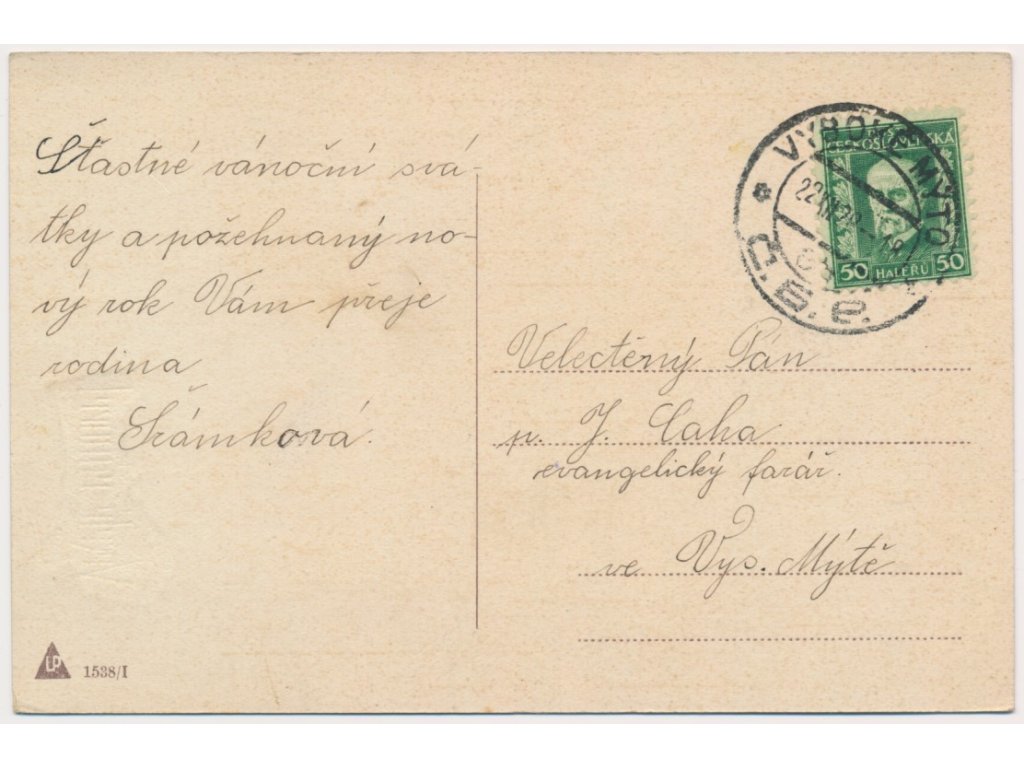 Šťastné vánoční svá-
tky a požehnaný no-
vý rok Vám přeje
rodina
Šrámková.
VYSOKÉ MÝTO
ČESKOSLOVENSKÁ
50 HALÉŘŮ 50
Velectěný Pán
p. J. Caha
evangelický farář.
ve Vys. Mýtě
LP 1538/I